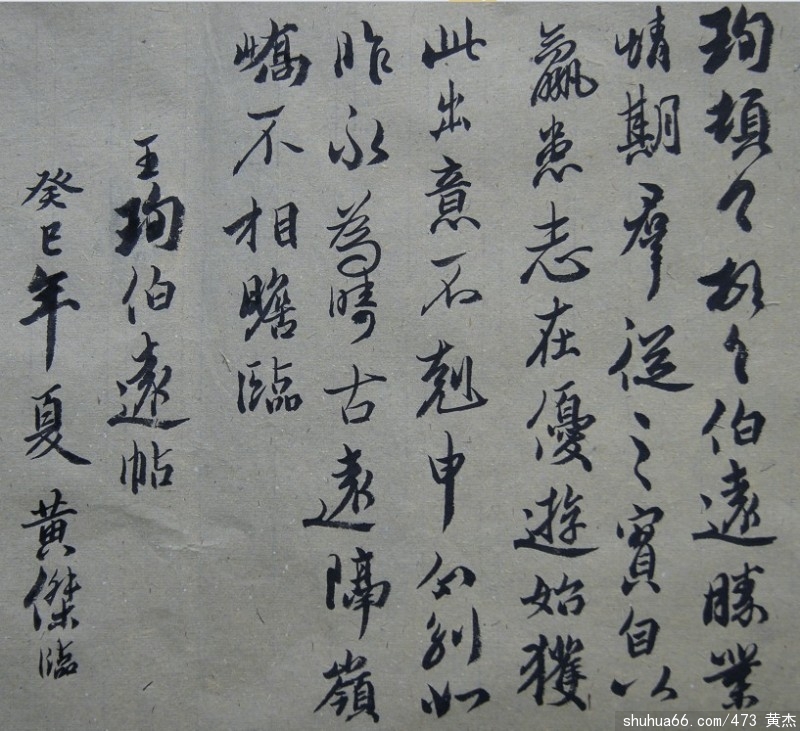 珣頓々首々伯遠勝業
情期羣從之寶自以
羸患志在優遊始獲
此出意不剋申分別如
昨永為疇古遠隔嶺
嶠不相瞻臨
王珣伯遠帖
癸巳年夏 黄傑臨
shuhua66.com/473 黄杰